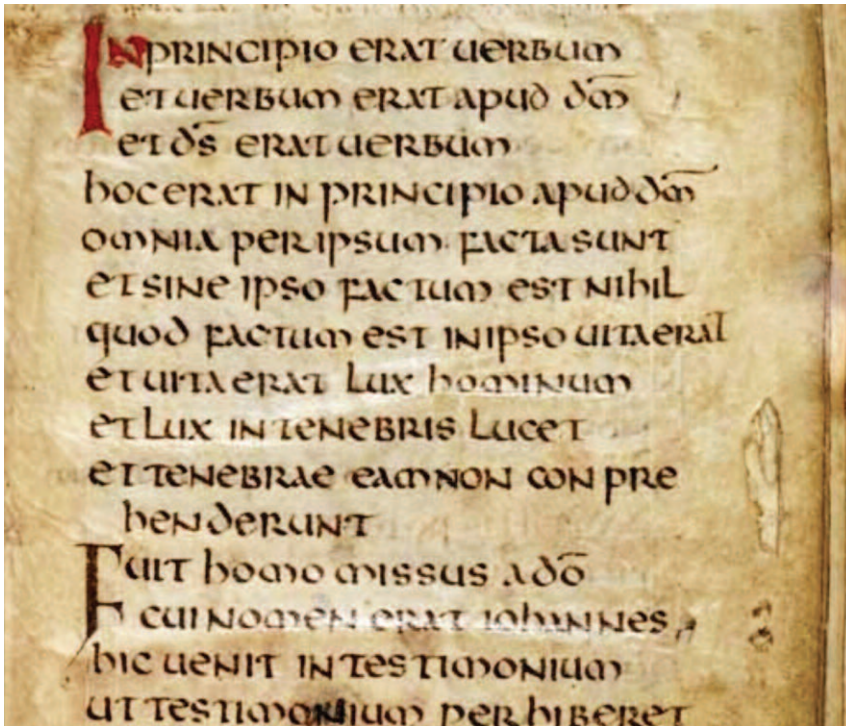 IN PRINCIPIO ERAT UERBUM
ET UERBUM ERAT APUD DM̄
ET DS̄ ERAT UERBUM
HOC ERAT IN PRINCIPIO APUD DM̄
OMNIA PER IPSUM FACTA SUNT
ET SINE IPSO FACTUM EST NIHIL
QUOD FACTUM EST IN IPSO UITA ERAT
ET UITA ERAT LUX HOMINUM
ET LUX IN TENEBRIS LUCET
ET TENEBRAE EAM NON CONPRE
HENDERUNT
FUIT HOMO MISSUS A DŌ
CUI NOMEN ERAT IOHANNES
HIC UENIT IN TESTIMONIUM
UT TESTIMONIUM PERHIBERET